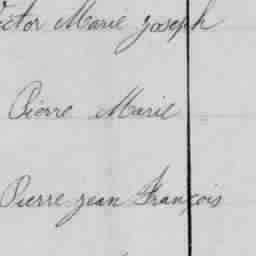 Victor Marie Joseph
Pierre Marie
Pierre jean François